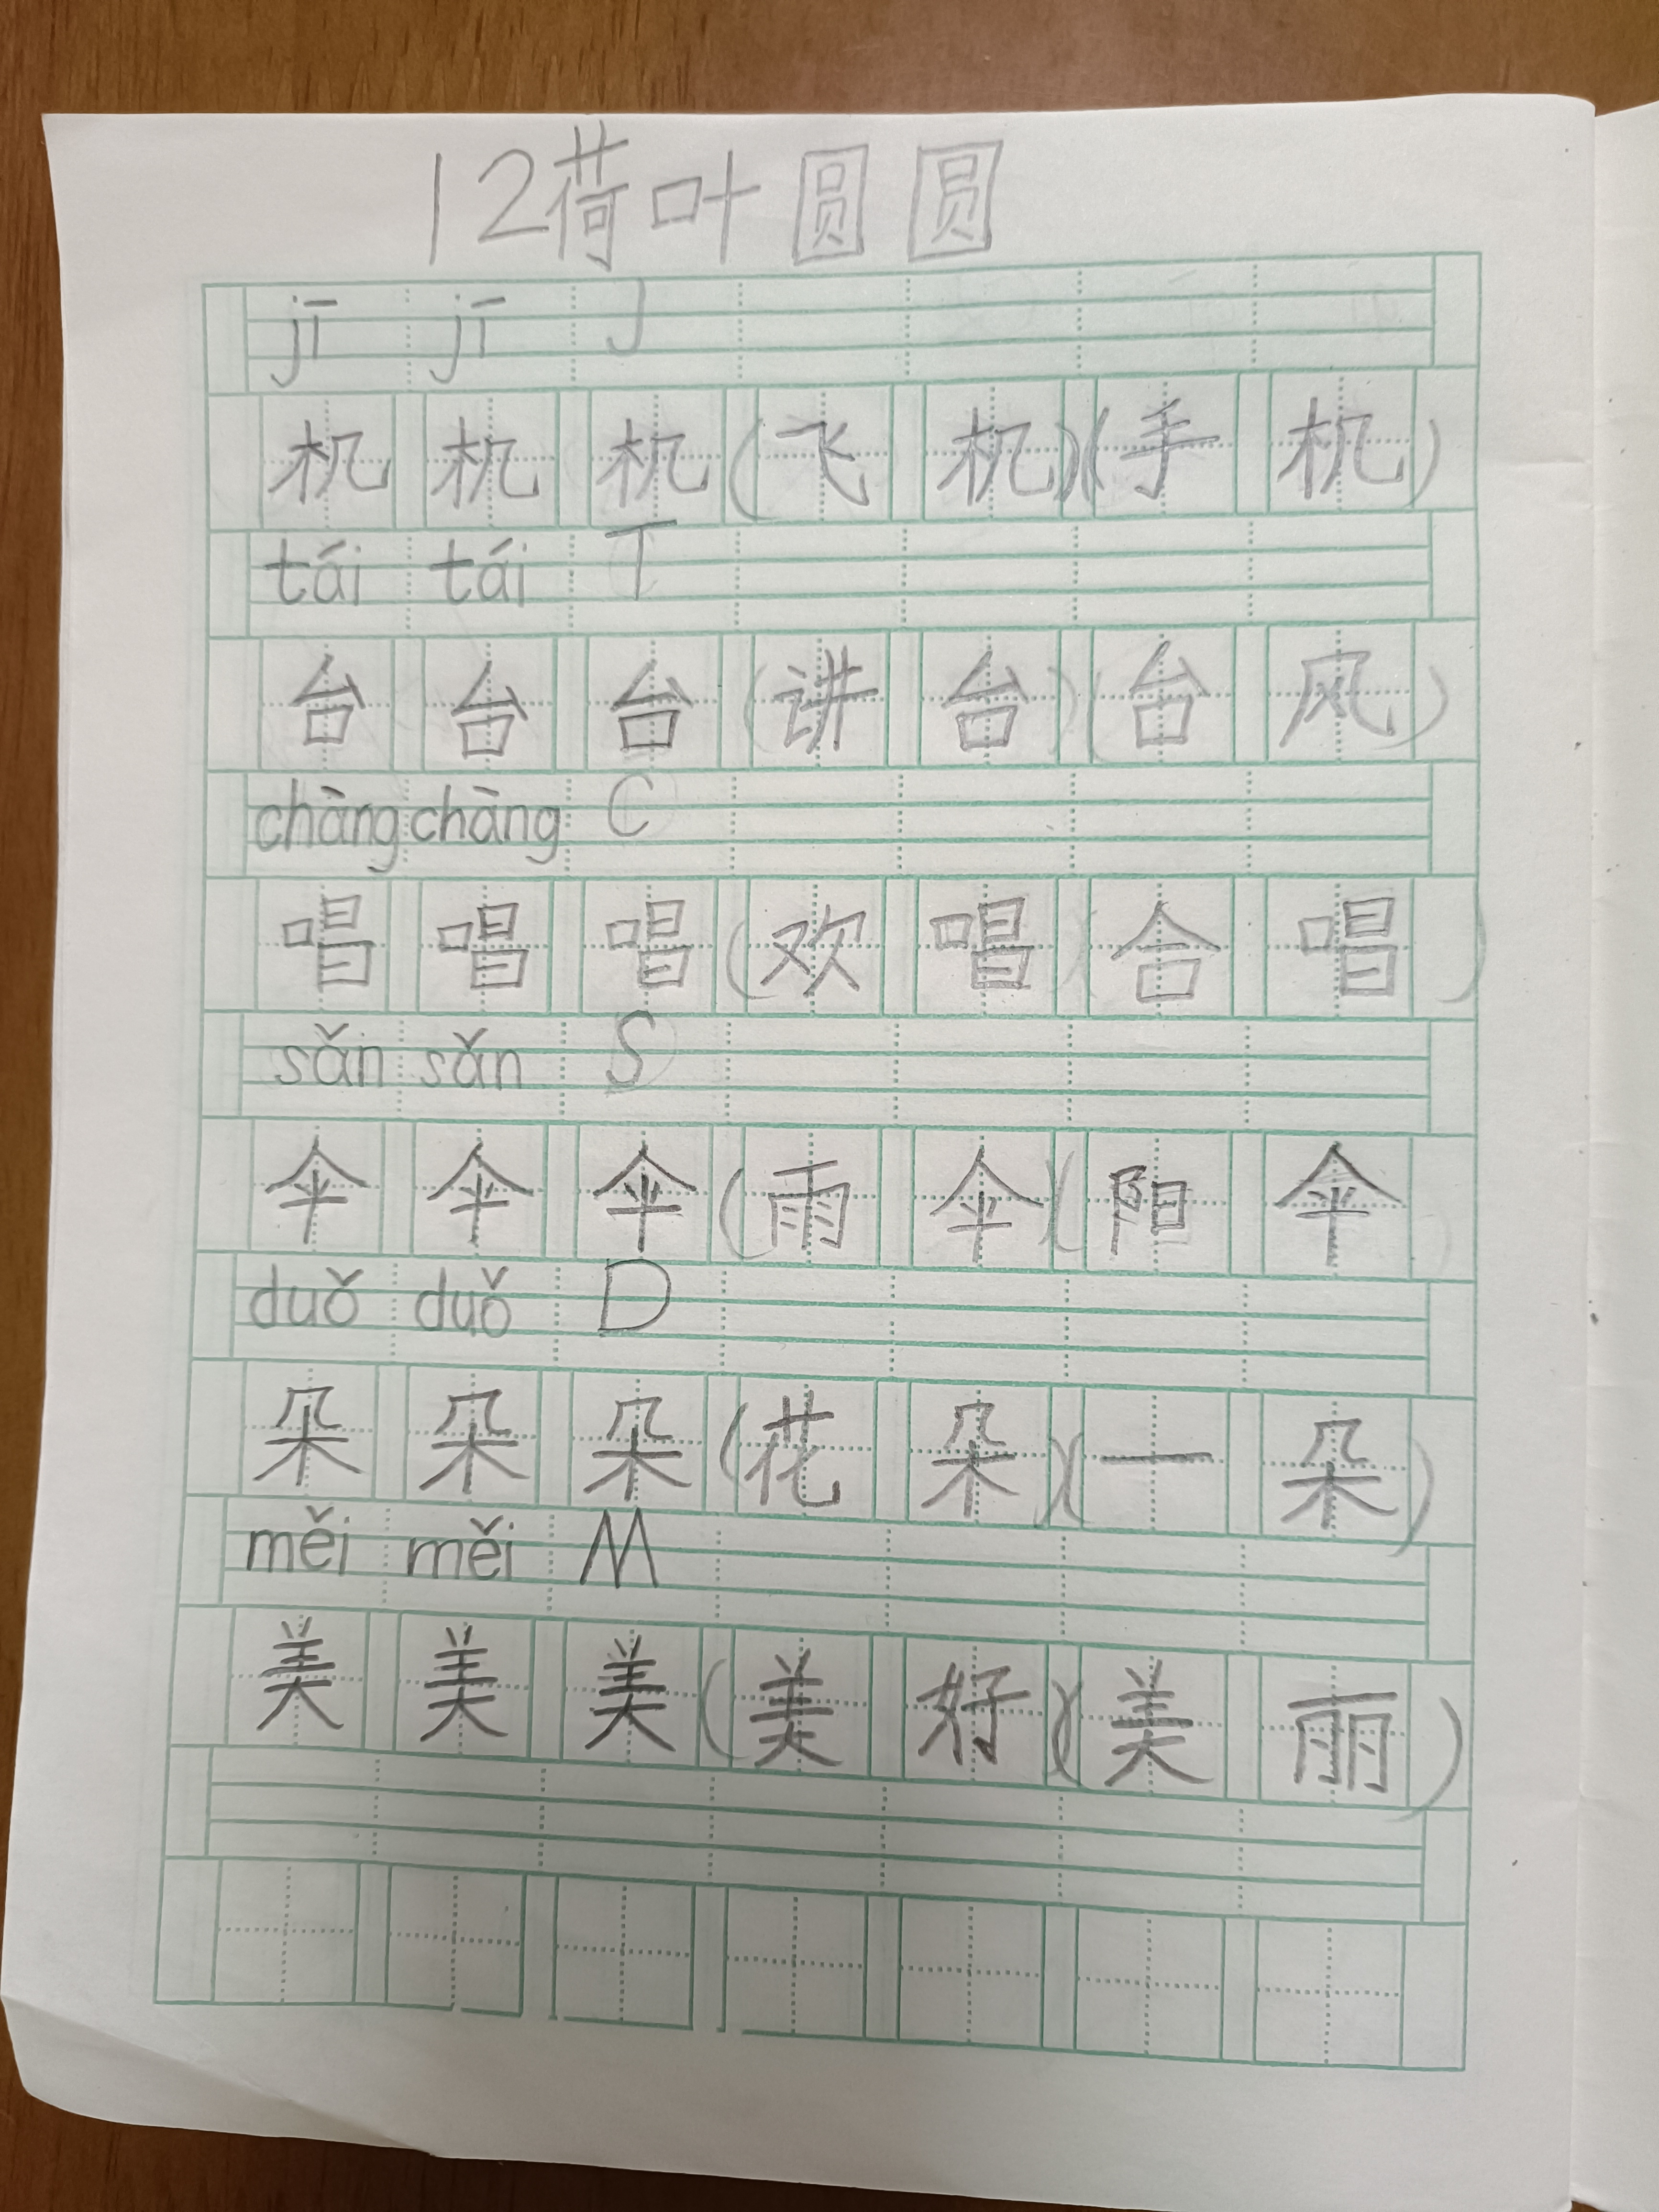 12荷叶圆圆
jī jī J
机机机(飞机)(手机)
tái tái T
台台台(讲台)(台风)
chàng chàng C
唱唱唱(欢唱)(合唱)
sǎn sǎn S
伞伞伞(雨伞)(阳伞)
duǒ duǒ D
朵朵朵(花朵)(一朵)
měi měi M
美美美(美好)(美丽)